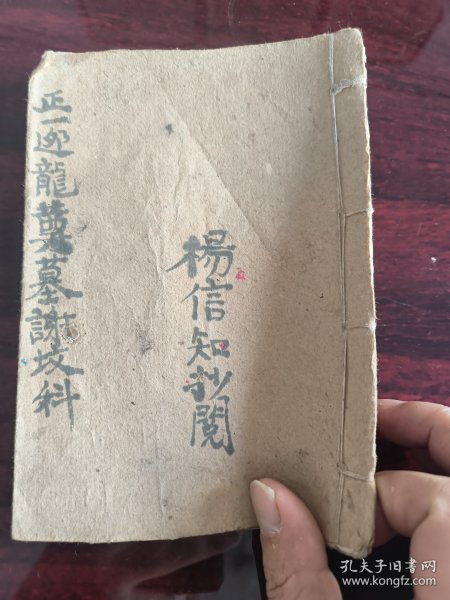 正一迎龍奠墓謝坟科
楊信知抄閲
孔夫子旧书网
www.kongfz.com